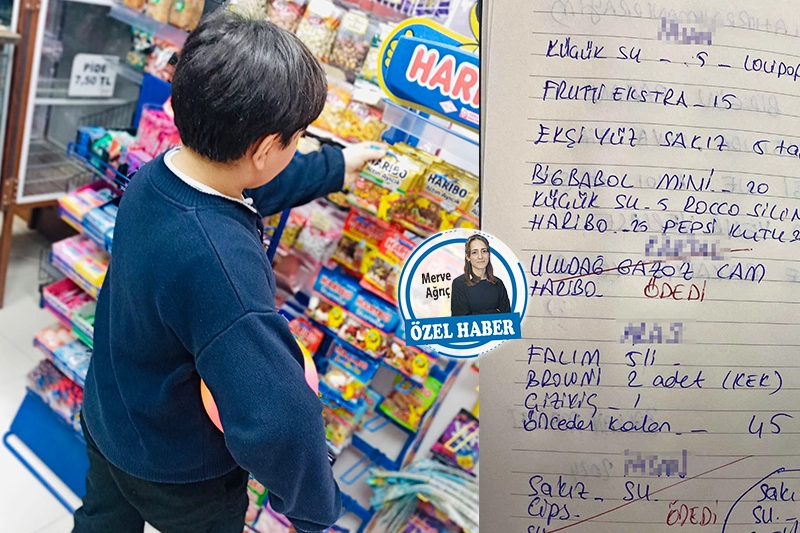 PİDE
7,50 TL
HARI
HARIBO
Altın Ayıcık
HARIBO
Merve
Ağrıç
ÖZEL HABER
KÜÇÜK SU - 5 - LOLIPOP
FRUTTI EKSTRA - 15
EKŞİ YÜZ SAKIZ 5 ta
BİGBABOL MİNİ - 20
KÜÇÜK SU - 5 ROCCO
HARIBO - 25 PEPSİ KUTU
ULUDAĞ GAZOZ CAM
HARIBO ÖDEDİ
FALIM 5 li -
BROWNİ 2 adet (KEK)
ÇİZİVİÇ - 1
önceden kalan - 45
Sakız - SU
Cips - ÖDEDİ
SU
SAKI
SU -